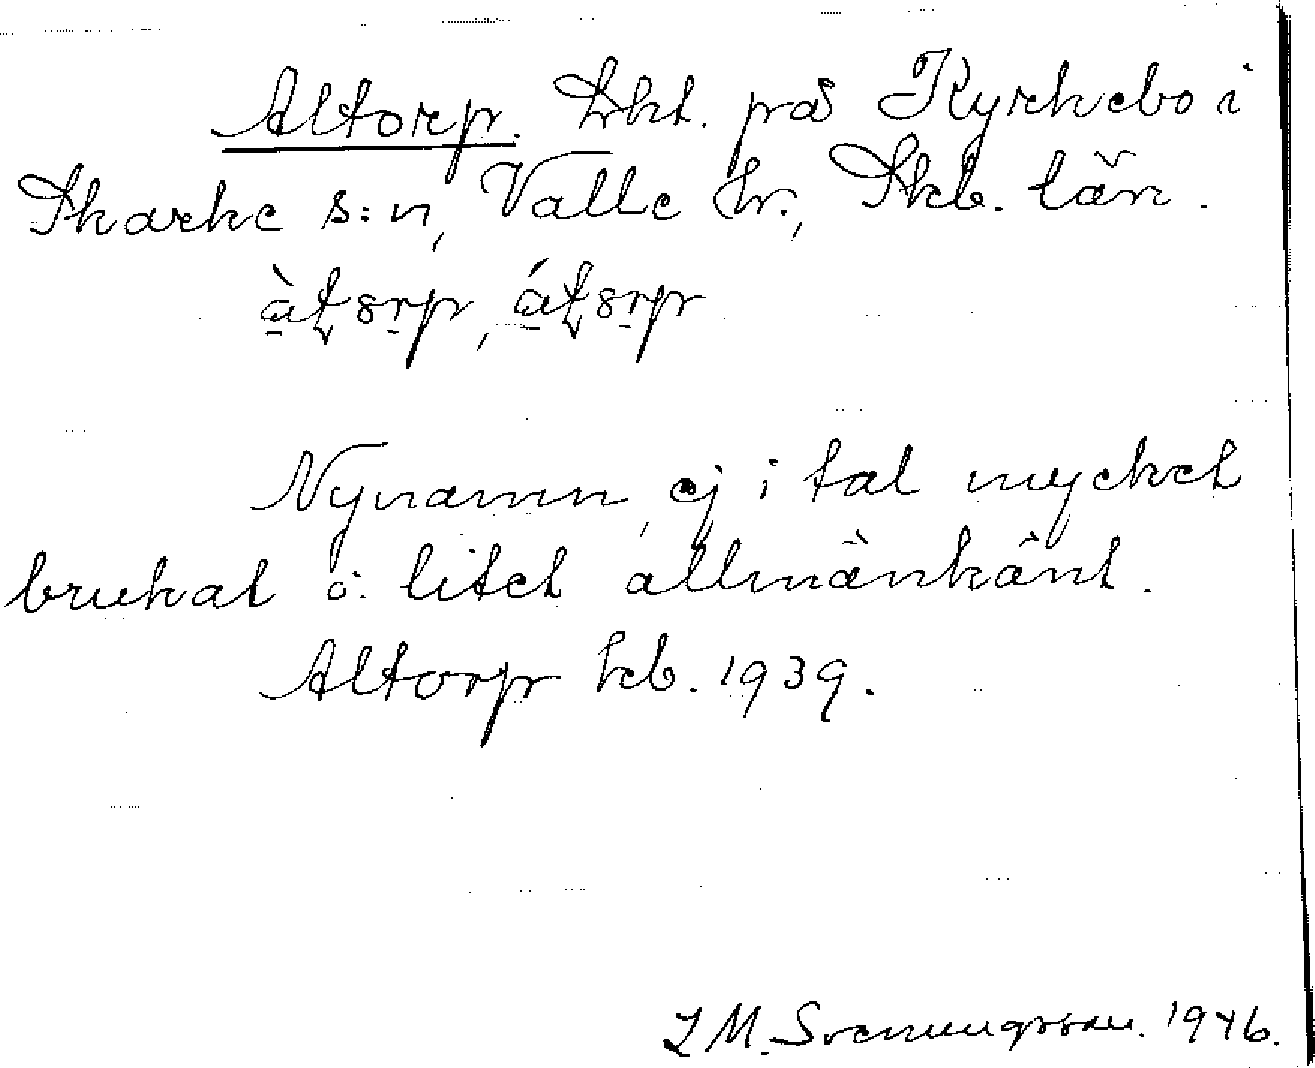 Altorp. Lht. på Kyrkebo i
Skarke s:n, Valle hr., Skb. län.
àtsrp, átsrp
Nynamn, ej i tal mycket
brukat o. litet allmänkänt.
Altorp kb. 1939.
L M. Svenungsson. 1946.